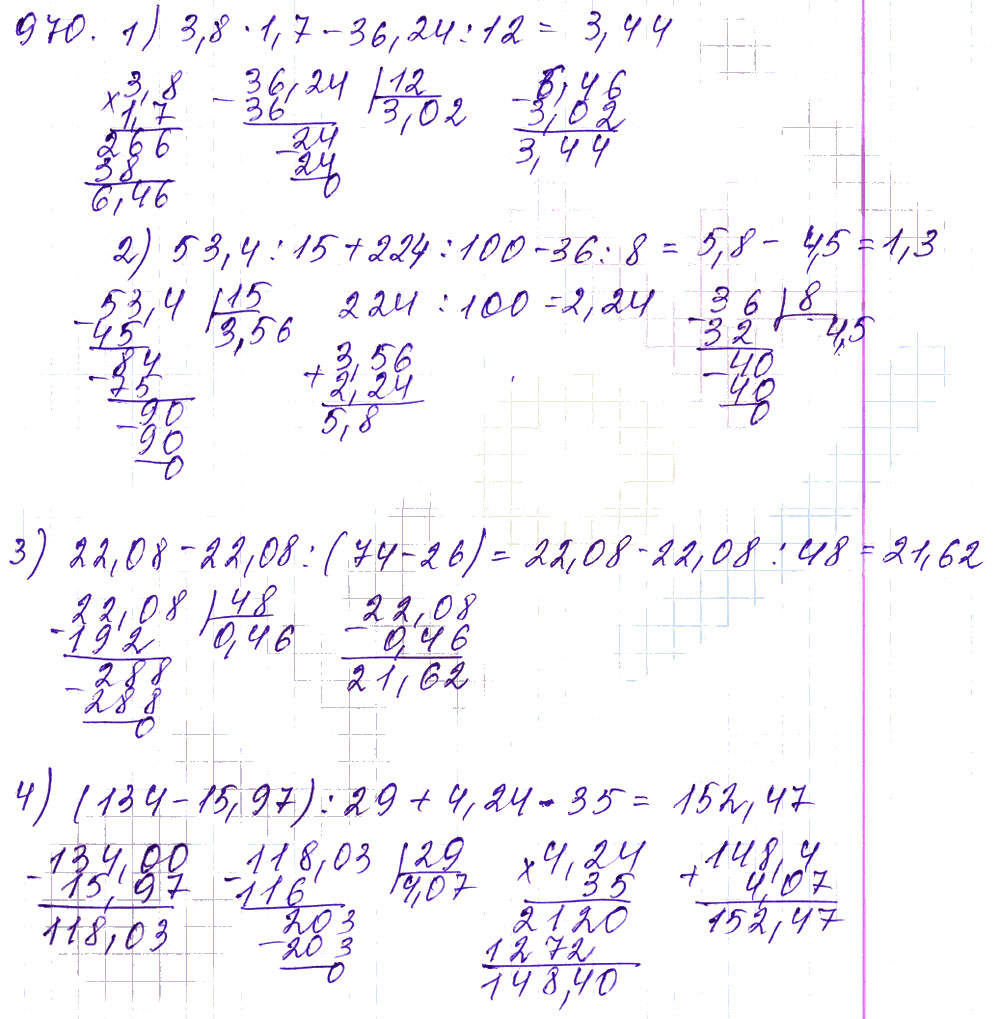 970. 1) 3,8 · 1,7 - 36,24 : 12 = 3,44
× 3,8 - 36,24 | 12 - 6,46
1,7 36 3,02 3,02
266 - 24 3,44
38 24
6,46 0
2) 53,4 : 15 + 224 : 100 - 36 : 8 = 5,8 - 4,5 = 1,3
- 53,4 | 15 224 : 100 = 2,24 - 36 | 8
45 3,56 32 4,5
- 84 + 3,56 - 40
75 2,24 40
- 90 5,8 0
90
0
3) 22,08 - 22,08 : (74 - 26) = 22,08 - 22,08 : 48 = 21,62
- 22,08 | 48 - 22,08
192 0,46 0,46
- 288 21,62
288
0
4) (134 - 15,97) : 29 + 4,24 · 35 = 152,47
- 134,00 - 118,03 | 29 × 4,24 + 148,4
15,97 116 4,07 35 4,07
118,03 203 2120 152,47
- 203 1272
0 148,40